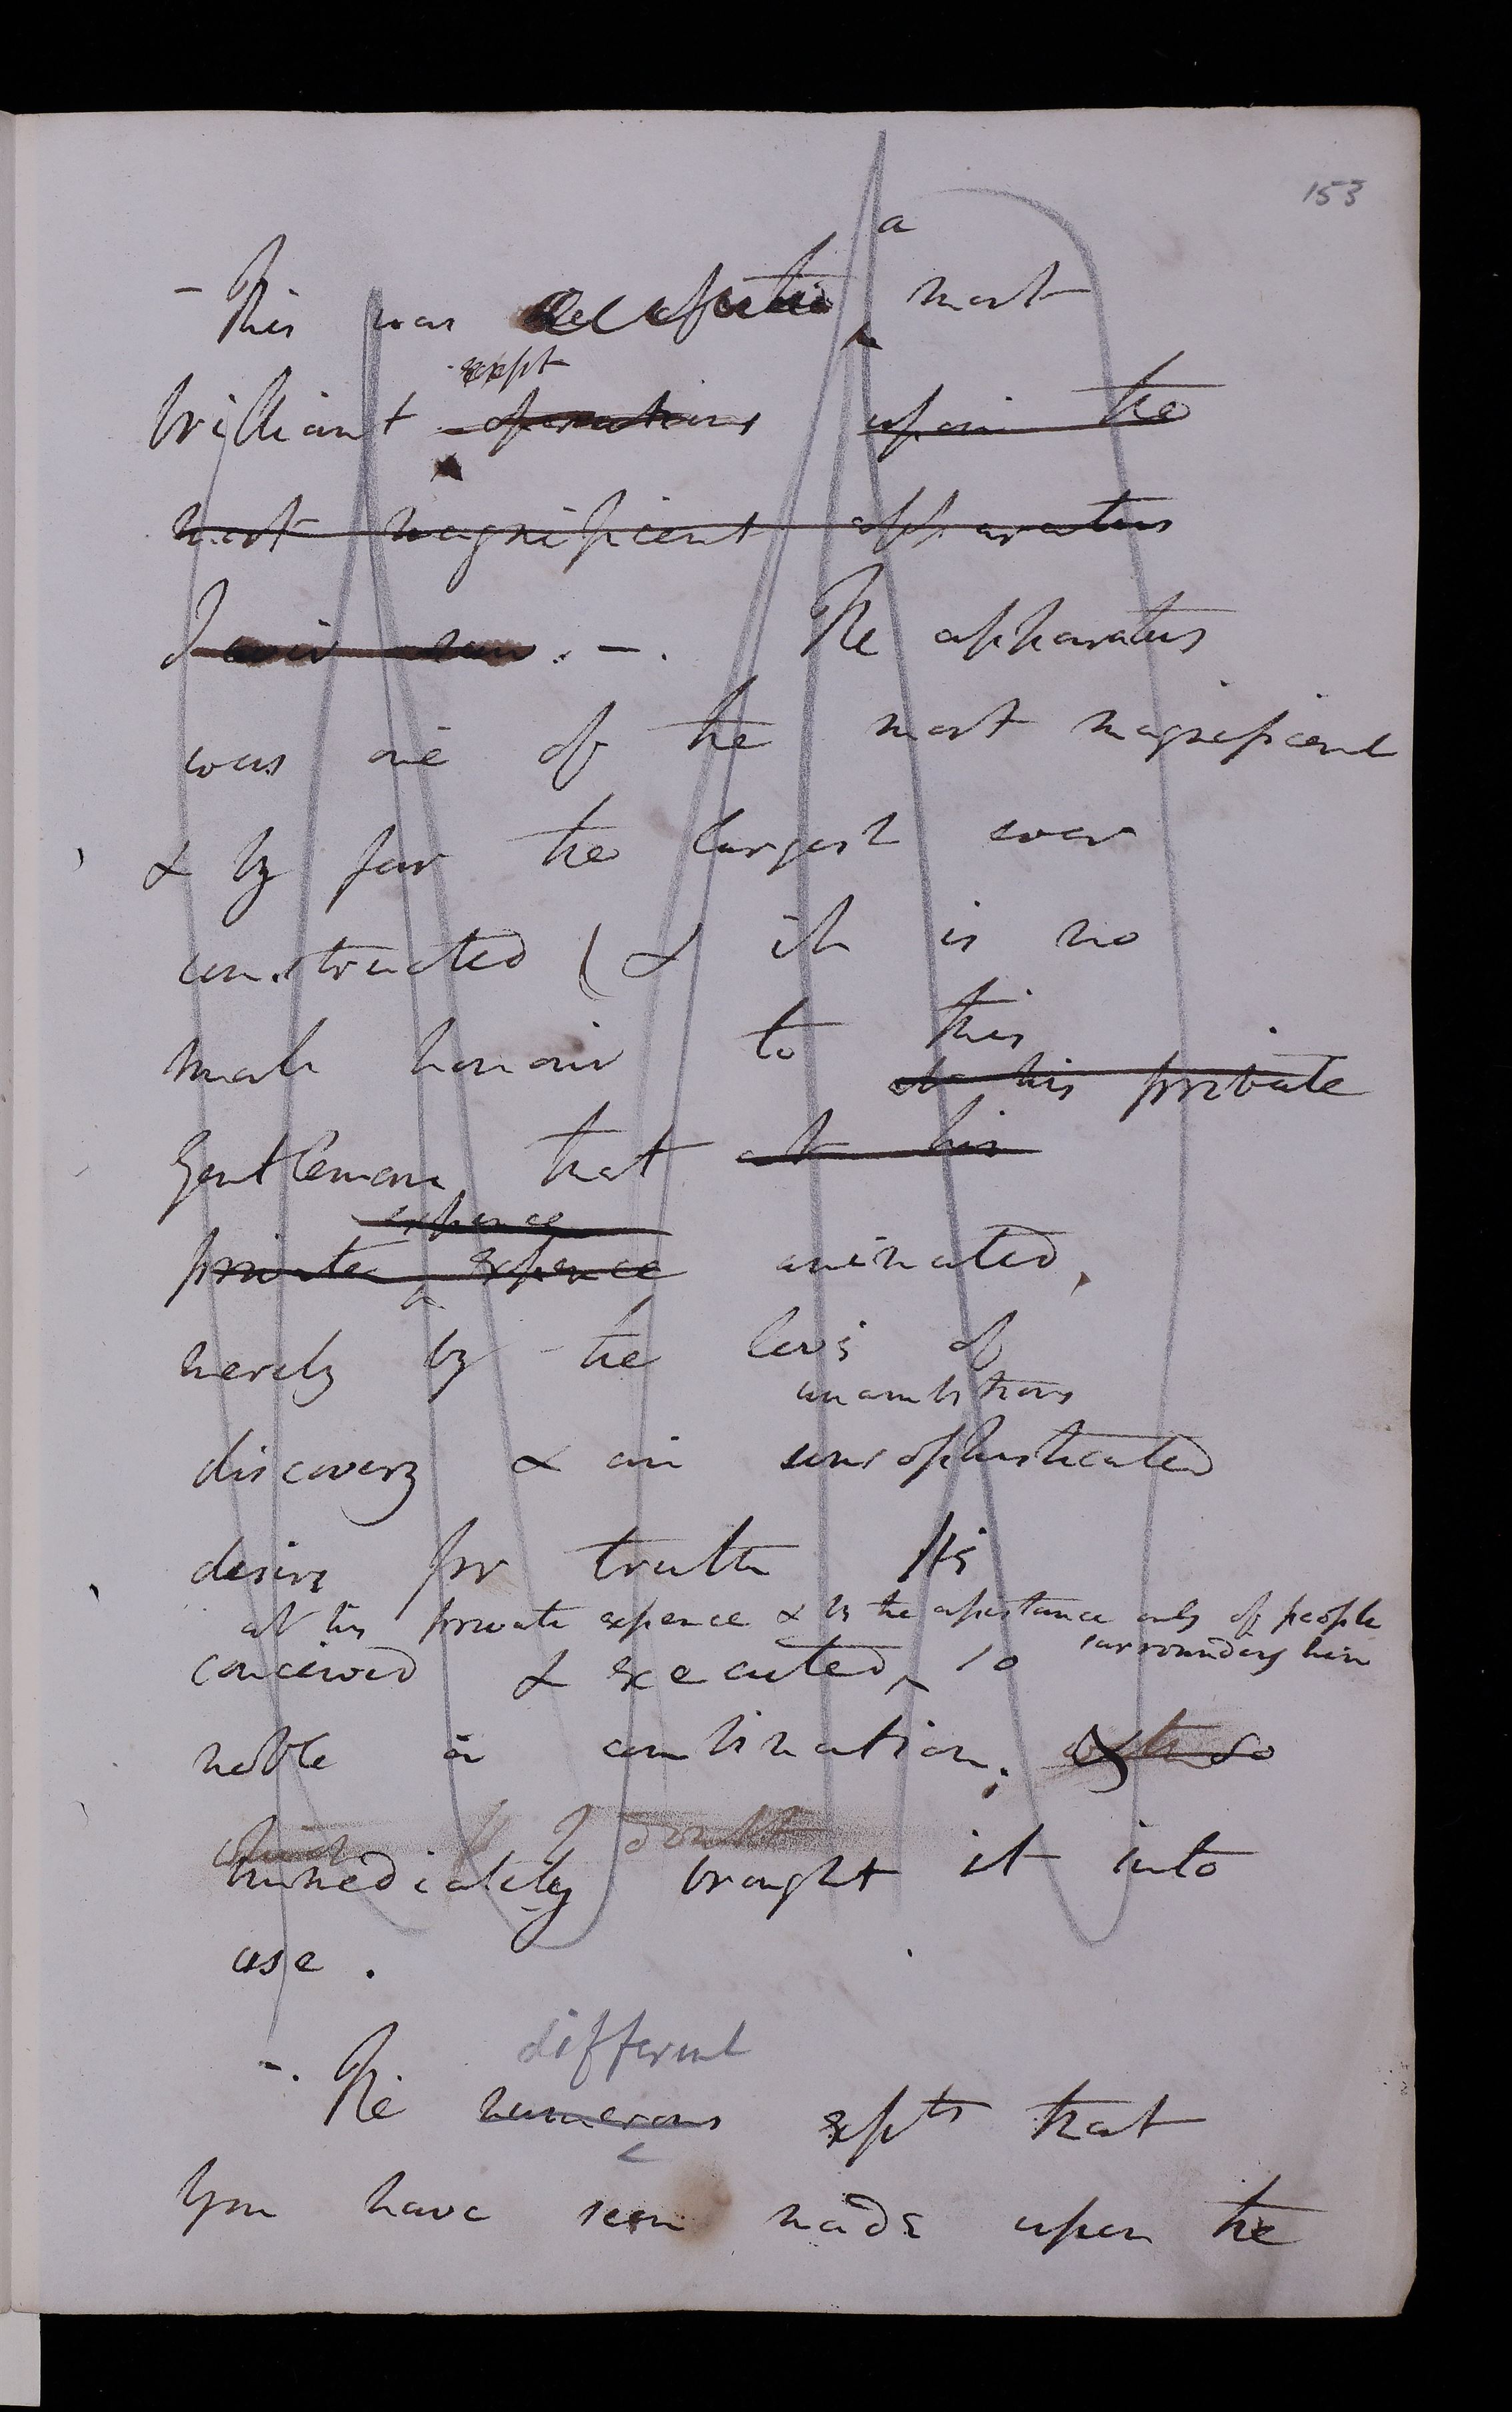 153
a
- This was most
expt
brilliant operations upon the
most magnificent apparatus
I ever saw. -. The apparatus
was one of the most magnificent
& by far the largest ever
constructed (& it is no
small honour to this
his private
Gentleman that at his
expence
private expence animated,
merely by the love of
unambitious
discovery & an unsophisticated
desire for truth He
at his private expence & by the assistance only of people
surrounding him
conceived & executed so
noble a combination. & so
which I doubt
immediately brought it into
use.
different
-. The numerous expts that
You have seen made upon the